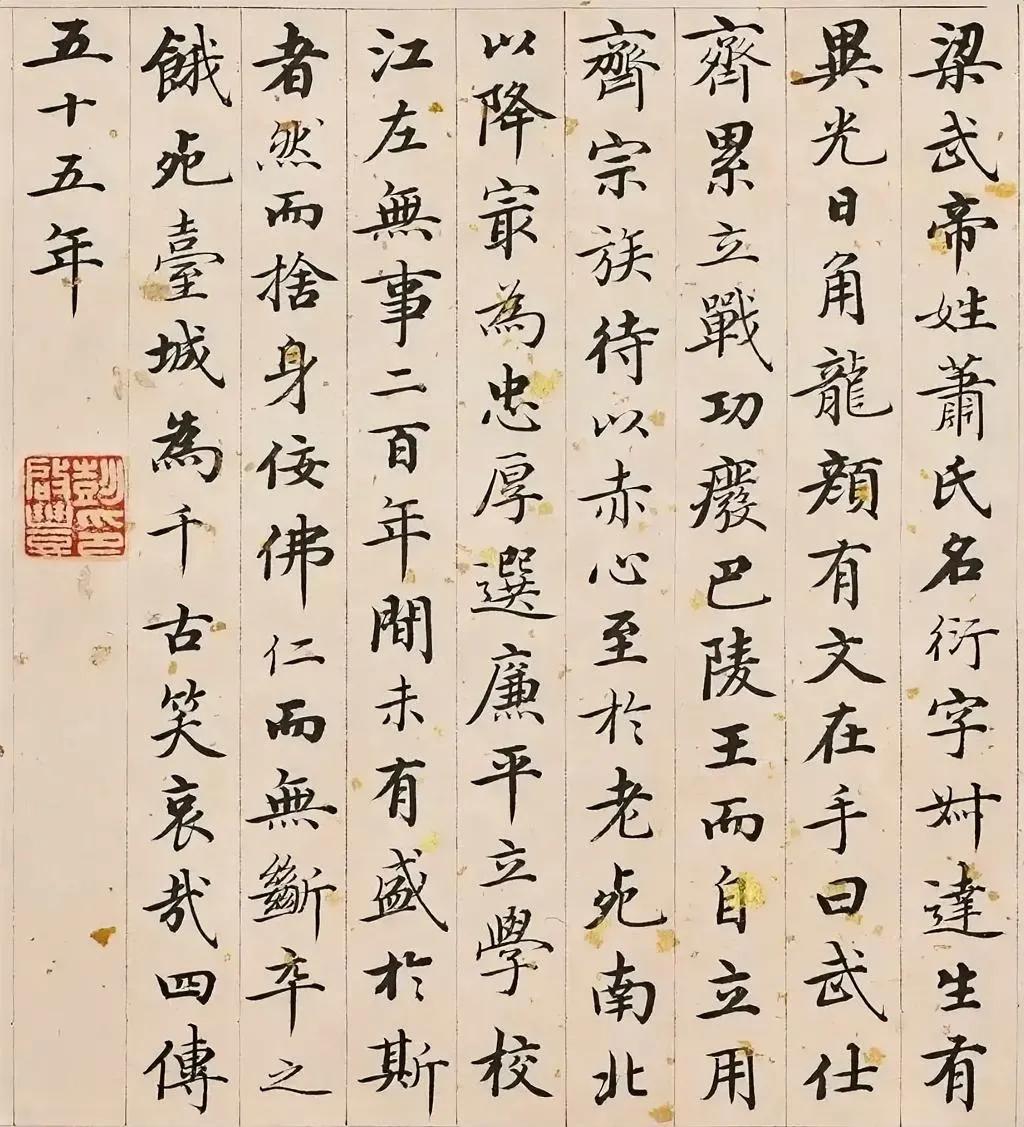 梁武帝姓蕭氏名衍字叔達生有
異光日角龍顏有文在手曰武仕
齊累立戰功癈巴陵王而自立用
齊宗族待以赤心至於老死南北
以降冣為忠厚選廉平立學校
江左無事二百年間未有盛於斯
者然而捨身佞佛仁而無斷卒之
餓死臺城為千古笑哀哉四傳
五十五年
彭印啟豐